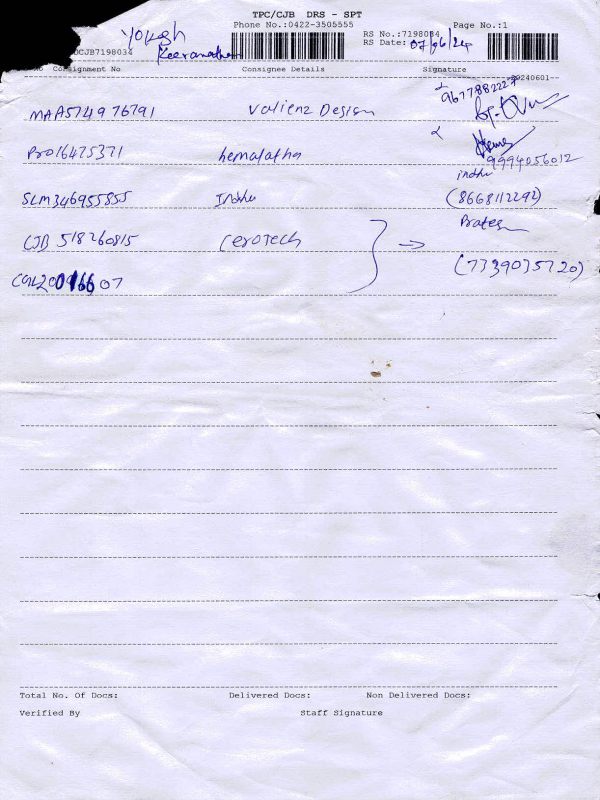 TPC/CJB DRS - SPT
Phone No.:0422-3505555
Page No.:1
Yokesh
Keeranatham
RS No.:7198034
RS Date: 07/06/24
CJB7198034
Consignment No Consignee Details Signature
20240601--
9677882227
MAA574976791 Valienz Design
PRO16475371 hemalatha
9994056012
indhu
SLM346955855 Indhu (8668112292)
CJB 518260815 Cerotech
(7739035720)
Total No. Of Docs: Delivered Docs: Non Delivered Docs:
Verified By Staff Signature